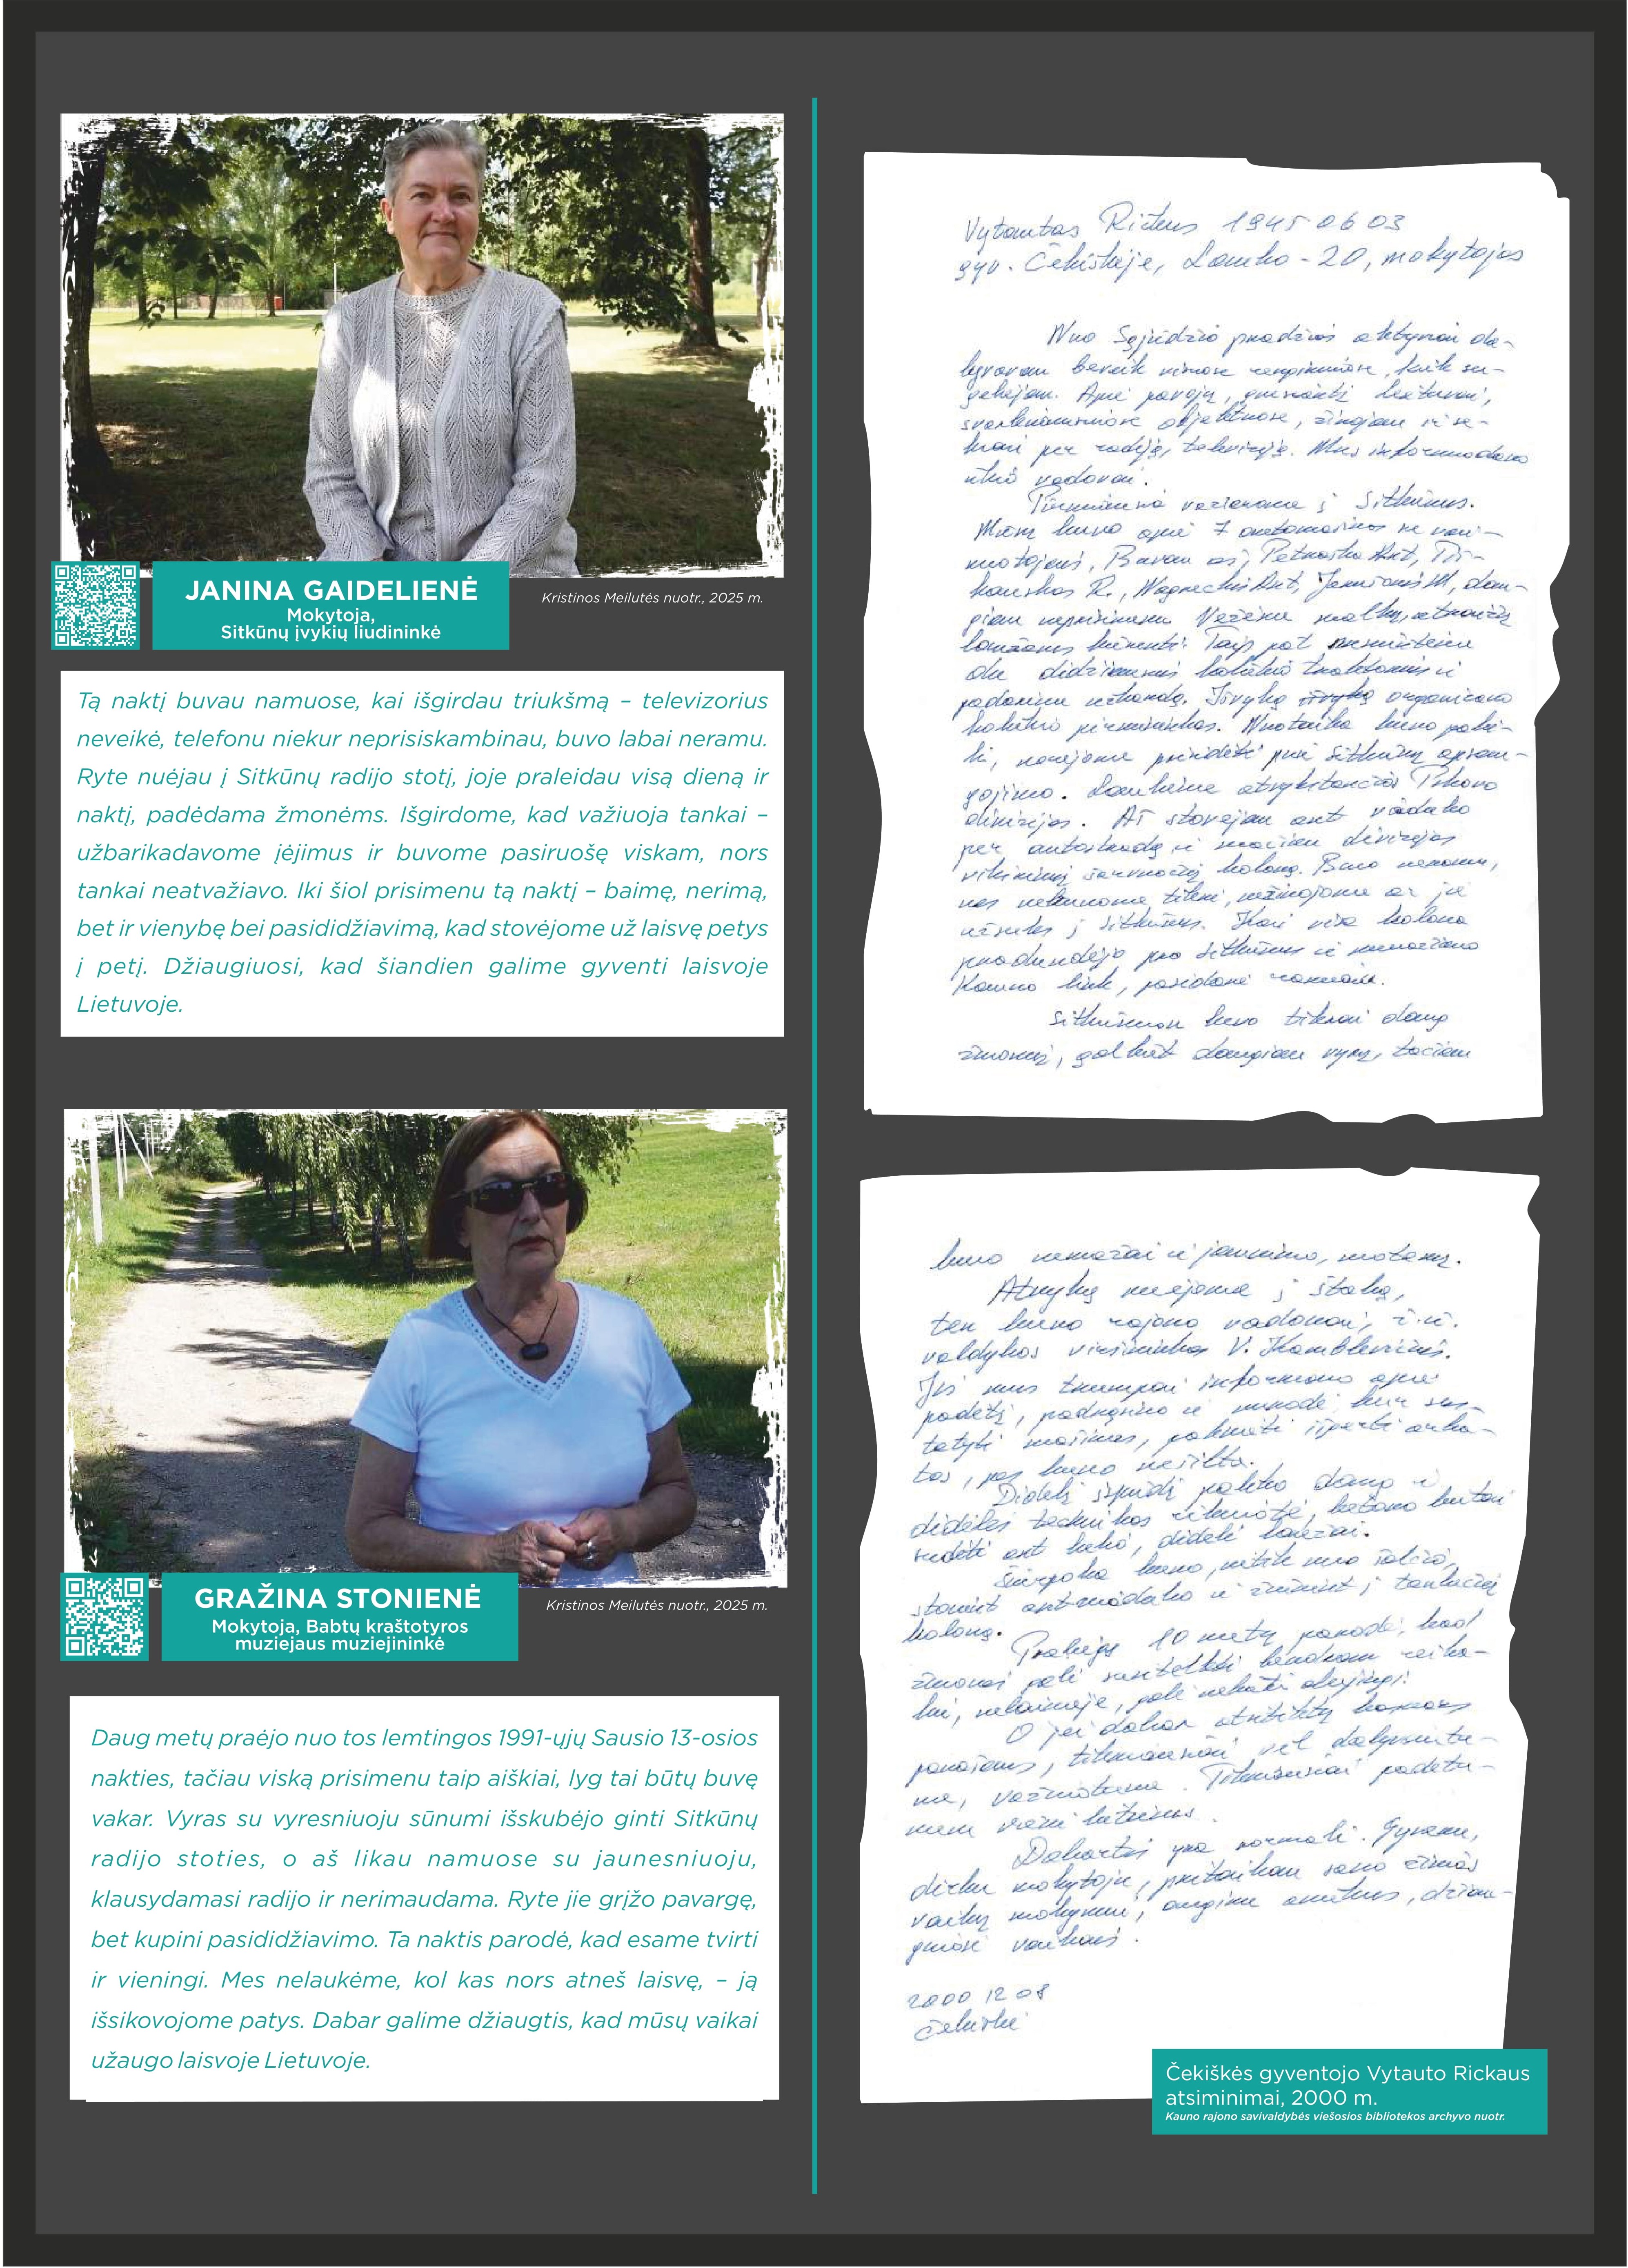 JANINA GAIDELIENĖ
Mokytoja,
Sitkūnų įvykių liudininkė
Kristinos Meilutės nuotr., 2025 m.
Tą naktį buvau namuose, kai išgirdau triukšmą – televizorius
neveikė, telefonu niekur neprisiskambinau, buvo labai neramu.
Ryte nuėjau į Sitkūnų radijo stotį, joje praleidau visą dieną ir
naktį, padėdama žmonėms. Išgirdome, kad važiuoja tankai –
užbarikadavome įėjimus ir buvome pasiruošę viskam, nors
tankai neatvažiavo. Iki šiol prisimenu tą naktį – baimę, nerimą,
bet ir vienybę bei pasididžiavimą, kad stovėjome už laisvę petys
į petį. Džiaugiuosi, kad šiandien galime gyventi laisvoje
Lietuvoje.
GRAŽINA STONIENĖ
Mokytoja, Babtų kraštotyros
muziejaus muziejininkė
Kristinos Meilutės nuotr., 2025 m.
Daug metų praėjo nuo tos lemtingos 1991-ųjų Sausio 13-osios
nakties, tačiau viską prisimenu taip aiškiai, lyg tai būtų buvę
vakar. Vyras su vyresniuoju sūnumi išskubėjo ginti Sitkūnų
radijo stoties, o aš likau namuose su jaunesniuoju,
klausydamasi radijo ir nerimaudama. Ryte jie grįžo pavargę,
bet kupini pasididžiavimo. Ta naktis parodė, kad esame tvirti
ir vieningi. Mes nelaukėme, kol kas nors atneš laisvę, – ją
išsikovojome patys. Dabar galime džiaugtis, kad mūsų vaikai
užaugo laisvoje Lietuvoje.
Vytautas Rickus 1945 06 03
gyv. Čekiškėje, Lauko - 20, mokytojas
Nuo Sąjūdžio pradžios aktyviai da-
lyvavau beveik visuose renginiuose, kiek su-
gebėjau. Apie pavojų, gresiantį Lietuvai,
svarbiausiuose objektuose, žinojau iš se-
kmai per radiją, televiziją. Mus informodavo
ūkio vadovai.
Pirmiausia važiavome į Sitkūnus.
Mūsų buvo apie 7 automašinos su vai-
ruotojais, Buvau aš, Petraška Ant,
R., Ant, M, dau-
giau neprisimenu. Vežėme malkų, atvežtų
laužams kūrenti. Taip pat
du didžiausius kolūkio traktorius ir
padarėme užkardą. Išvyką organizavo
kolūkio pirmininkas. Nuotaika buvo paki-
li, norėjome prisidėti prie Sitkūnų apsau-
gojimo. Laukėme atvykstančios Pskovo
divizijos. Aš stovėjau ant viaduko
per autostradą ir mačiau divizijos
vikšrinių šarvuočių koloną. Buvo neramu,
nes nebuvome tikri, nežinojome ar jie
užsuks į Sitkūnus. Kai visa kolona
pradundėjo pro Sitkūnus ir nuvažiavo
Kauno link, pasidarė ramiau.
Sitkūnuose buvo tikrai daug
žmonių, galbūt daugiau vyrų, tačiau
buvo nemažai ir jaunimo, moterų.
Atvykę nuėjome į štabą,
ten buvo rajono vadovai, ž.ū.
valdybos viršininkas V.
Jis mus trumpai informavo apie
padėtį, padrąsino ir nurodė kur sus-
tatyti mašinas, pakvietė išgerti arba-
tos, nes buvo nešilta.
Didelį įspūdį paliko daug ir
didelės technikos, betono
sudėti ant kelio, dideli laužai.
Šiurpoka buvo, netik nuo šalčio,
stovint ant viaduko ir žiūrint į tankučių
koloną.
Praėjęs 10 metų parodė, kad
žmonės gali susitelkti bendram reika-
lui, nelaimėje, gali nebūti abejingi.
O jei dabar atsitiktų kas nors
panašaus, tikriausiai vėl dalyvautu-
me, važiuotume. Tikriausiai padėtu-
mem vieni kitiems.
Dabartis yra normali. Gyvenu,
dirbu mokytoju, pritaikau savo žinias
vaikų mokymui, auginu anūkus, džiau-
giuosi vaikais.
2000 12 08
Čekiškė
Čekiškės gyventojo Vytauto Rickaus
atsiminimai, 2000 m.
Kauno rajono savivaldybės viešosios bibliotekos archyvo nuotr.